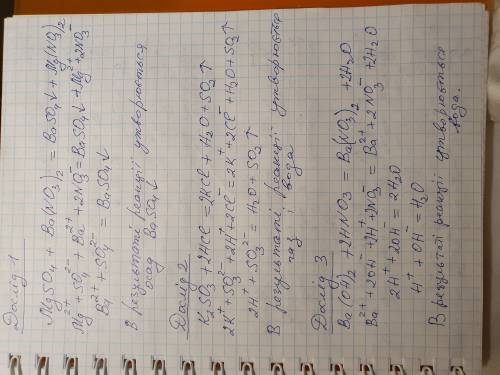 Дослід 1
MgSO₄ + Ba(NO₃)₂ = BaSO₄↓ + Mg(NO₃)₂
Mg²⁺ + SO₄²⁻ + Ba²⁺ + 2NO₃⁻ = BaSO₄↓ + Mg²⁺ + 2NO₃⁻
Ba²⁺ + SO₄²⁻ = BaSO₄↓
В результаті реакції утворюється
осад BaSO₄↓
Дослід 2
K₂SO₃ + 2HCl = 2KCl + H₂O + SO₂↑
2K⁺ + SO₃²⁻ + 2H⁺ + 2Cl⁻ = 2K⁺ + 2Cl⁻ + H₂O + SO₂↑
2H⁺ + SO₃²⁻ = H₂O + SO₂↑
В результаті реакції утворюється
газ і вода
Дослід 3
Ba(OH)₂ + 2HNO₃ = Ba(NO₃)₂ + 2H₂O
Ba²⁺ + 2OH⁻ + 2H⁺ + 2NO₃⁻ = Ba²⁺ + 2NO₃⁻ + 2H₂O
2H⁺ + 2OH⁻ = 2H₂O
H⁺ + OH⁻ = H₂O
В результаті реакції утворюється
вода.